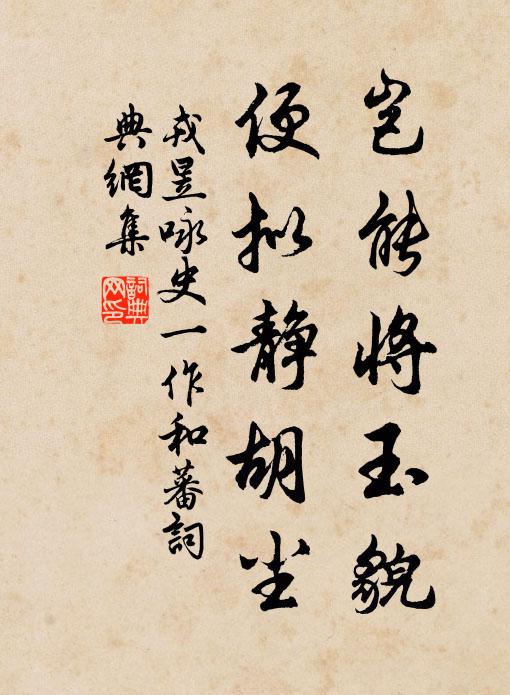 岂能将玉貌
便拟静胡尘
戎昱咏史一作和蕃詞
典網集
詞典网印